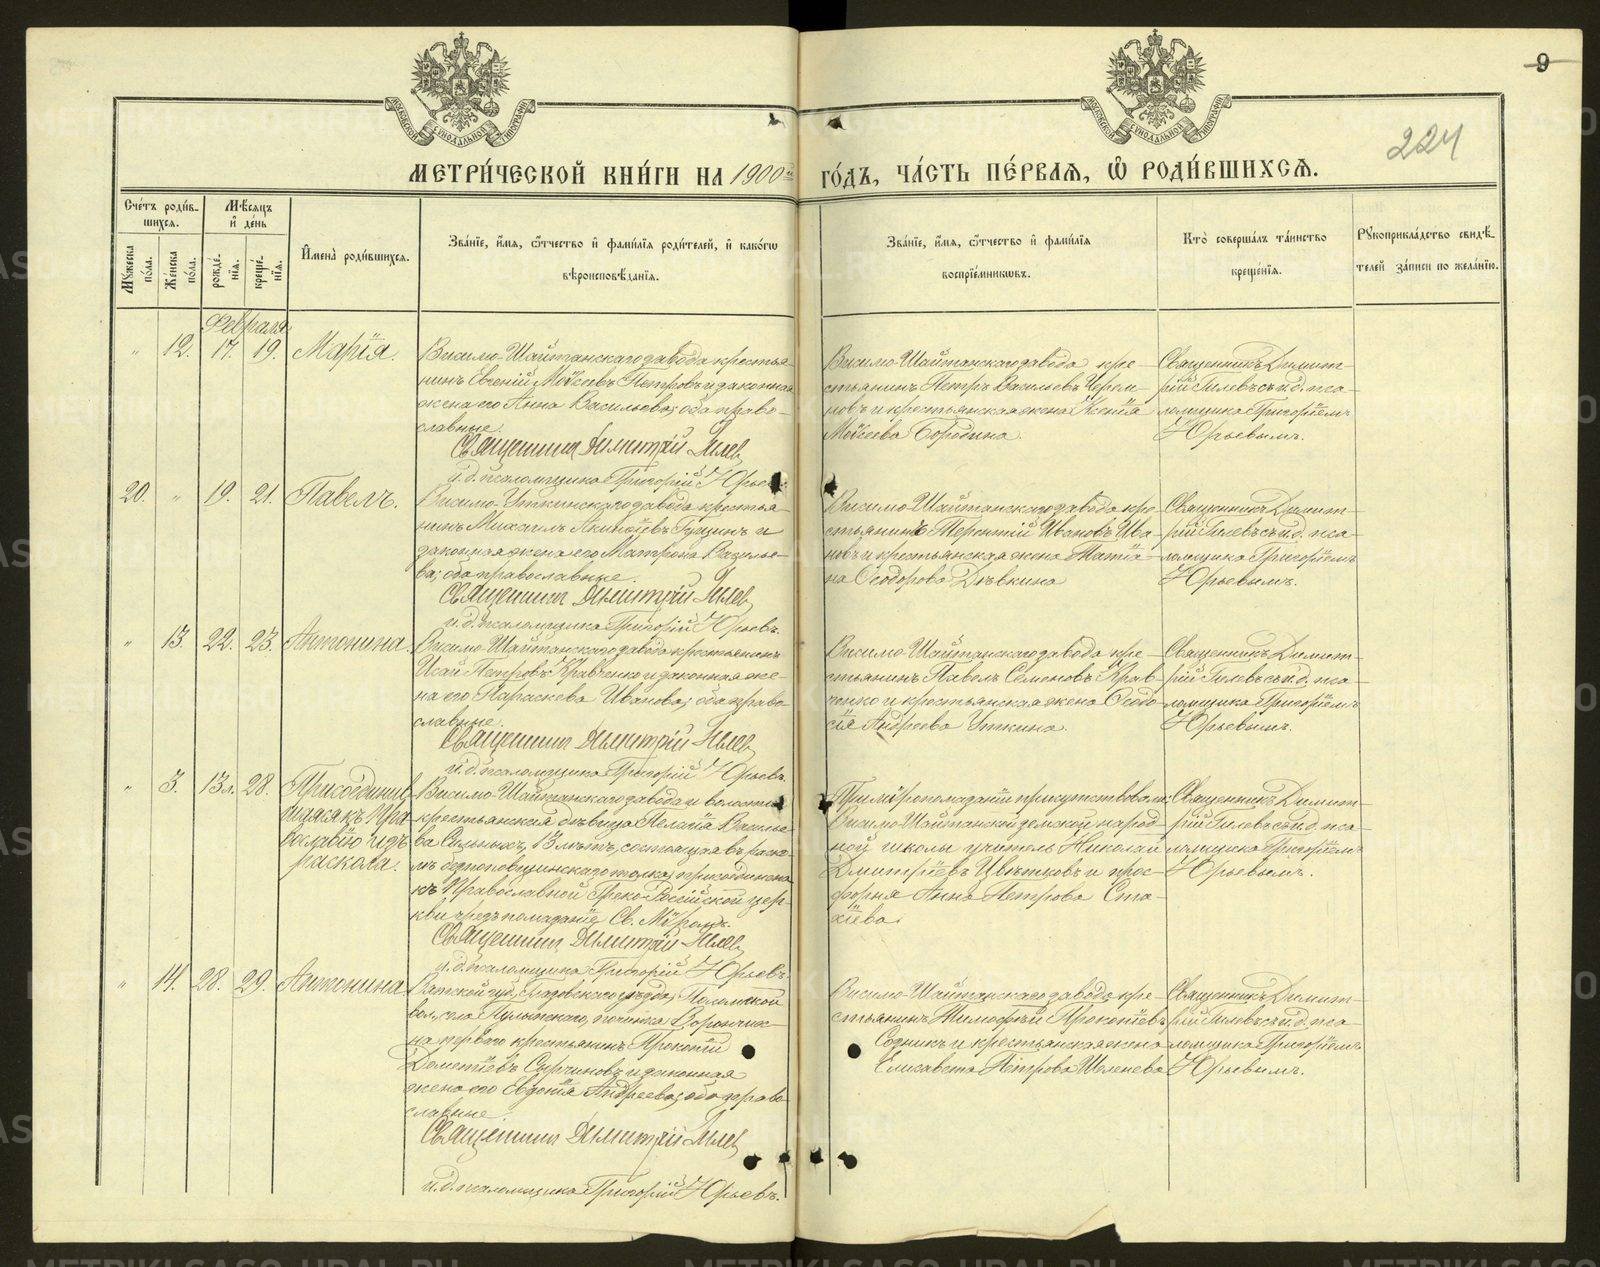 9
224
МЕТРИ́ЧЕСКОЙ КНИ́ГИ НА 1900й ГО́ДЪ, ЧА́СТЬ ПЕ́РВАѦ, Ѡ РОДИ́ВШИХСѦ.
Сче́тъ роди́в-
шихся.
Мѣ́сяцъ
и де́нь
Мꙋжеска по́ла.
Же́нска по́ла.
рожде́-
нїя.
креще́-
нїя.
Имена̀ роди́вшихся.
Зва́нїе, и́мя, ѻ҆́тчество и фами́лїя роди́телей, и како́гѡ
вѣроисповѣ́данїя.
Зва́нїе, и́мя, ѻ҆́тчество и фами́лїя
воспрїе́мникѡвъ.
Кто̀ соверша́лъ та́инство
креще́нїя.
Рꙋкоприкла́дство свидѣ́-
телей за́писи по жела́нїю.
Февраля
" 12. 17. 19. Марія.
Висимо-Шайтанскаго завода крестья-
нинъ Евгеній Моѵсеевъ Петровъ и законная
жена его Анна Васильева; оба право-
славные.
Священникъ Димитрій Гилевъ
и.д. псаломщика Григорій Юрьевъ
Висимо-Шайтанскаго завода кре-
стьянинъ Петръ Васильевъ Черем-
новъ и крестьянская жена Ксенія
Моѵсеева Бородина.
Священникъ Димит-
рій Гилевъ съ и.д. пса-
ломщика Григоріемъ
Юрьевымъ.
20. " 19. 21. Павелъ.
Висимо-Уткинскаго завода крестья-
нинъ Михаилъ Акинѳіевъ Гущинъ и
законная жена его Матрона Василье-
ва; оба православные.
Священникъ Димитрій Гилевъ
и.д. псаломщика Григорій Юрьевъ.
Висимо-Шайтанскаго завода кре-
стьянинъ Терентій Ивановъ Ива-
новъ и крестьянская жена Татія-
на Ѳеодорова Дѣвкина
Священникъ Димит-
рій Гилевъ съ и.д. пса-
ломщика Григоріемъ
Юрьевымъ.
" 13. 22. 23. Антонина.
Висимо-Шайтанскаго завода крестьянинъ
Исай Петровъ Кравченко и законная же-
на его Параскева Иванова; оба право-
славные.
Священникъ Димитрій Гилевъ
и.д. псаломщика Григорій Юрьевъ.
Висимо-Шайтанскаго завода кре-
стьянинъ Павелъ Семеновъ Крав-
ченко и крестьянская жена Ѳеодо-
сія Андреева Уткина.
Священникъ Димит-
рій Гилевъ съ и.д. пса-
ломщика Григоріемъ
Юрьевымъ.
" 3. 13л. 28. Присоединив-
шаяся къ Пра-
вославію изъ
раскола.
Висимо-Шайтанскаго завода и волости
крестьянская дѣвица Пелагія Василье-
ва Сильныхъ, 13 лѣтъ, состоящая въ раско-
лѣ безпоповщинскаго толка, присоединена
къ Православной Греко-Россійской цер-
кви чрезъ помазаніе Св. Мѵромъ.
Священникъ Димитрій Гилевъ
и.д. псаломщика Григорій Юрьевъ.
При мѵропомазаніи присутствовали:
Висимо-Шайтанской земской народ-
ной школы учитель Николай
Дмитріевъ Цвѣтковъ и прос-
форня Анна Петрова Ста-
хіева.
Священникъ Димит-
рій Гилевъ съ и.д. пса-
ломщика Григоріемъ
Юрьевымъ.
" 14. 28. 29. Антонина.
Вятской губ., Глазовскаго уѣзда,
вол., села починка
на перваго крестьянинъ Прокопій
Дометіевъ Сырчиновъ и законная
жена его Евдокія Андреева; оба право-
славные.
Священникъ Димитрій Гилевъ
и.д. псаломщика Григорій Юрьевъ.
Висимо-Шайтанскаго завода кре-
стьянинъ Тимоѳей Прокопіевъ
и крестьянская жена
Елисавета Петрова Шеленева
Священникъ Димит-
рій Гилевъ съ и.д. пса-
ломщика Григоріемъ
Юрьевымъ.